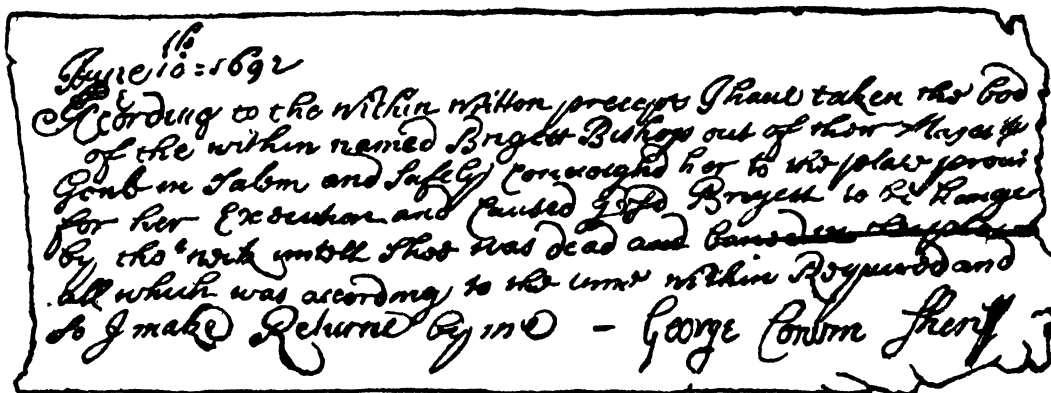 June 10th = 1692
According to the within written precept I have taken the bod
of the within named Brigett Bishop out of their Majesties
Goale in Salem and Safely Conveighd her to the place provi
for her Execution and Caused ye sd Brigett to be hange
by the neck untill Shee was dead and buried in the place
all which was according to the time within Required and
So I make Returne by me - George Corwin Sheriff